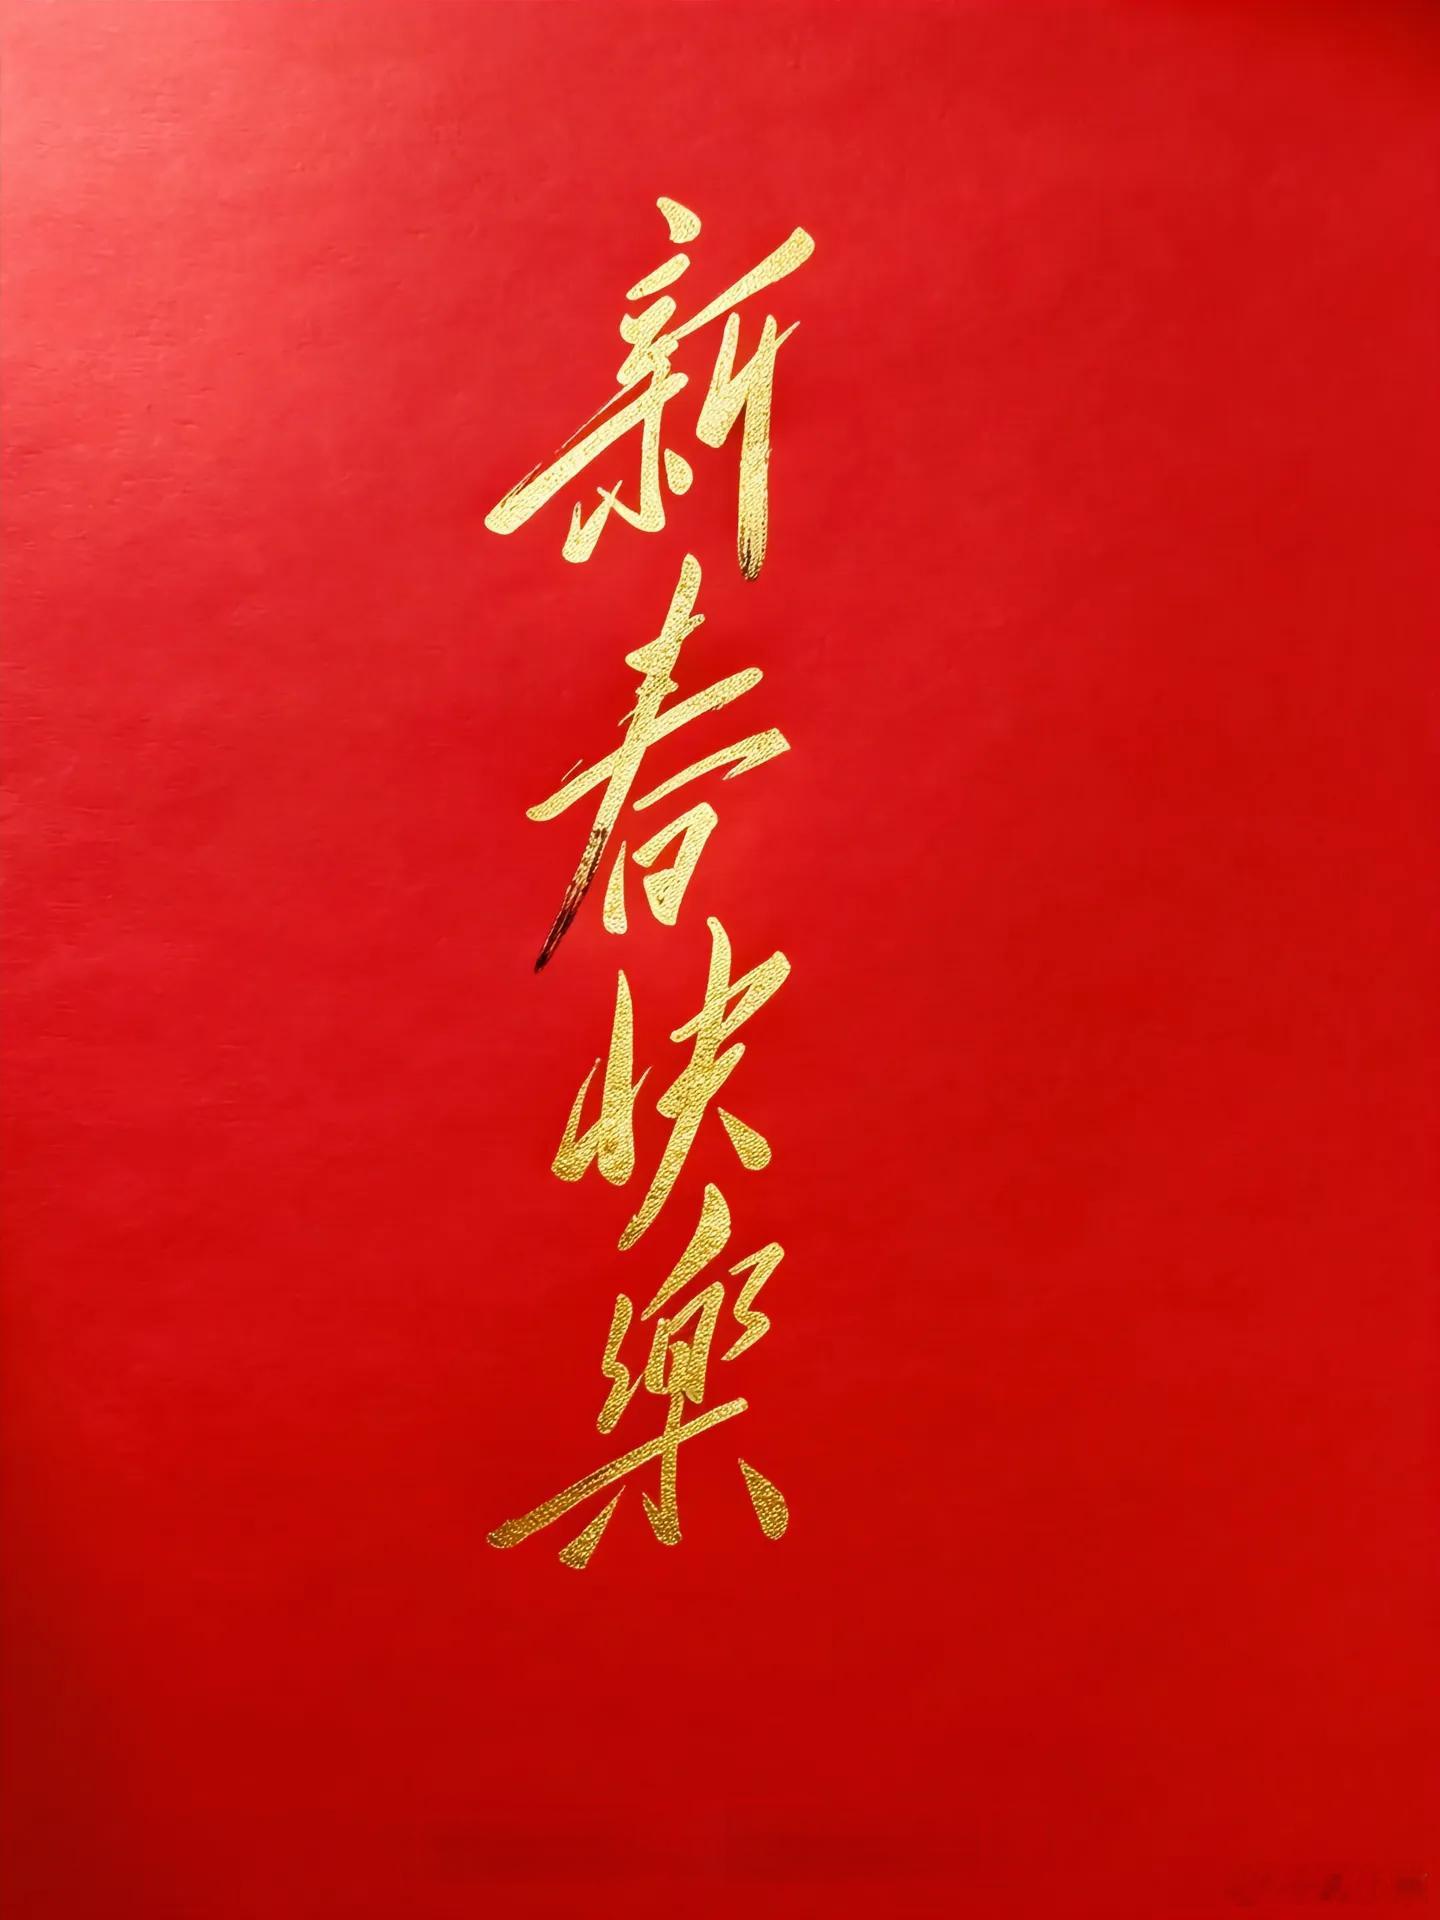 新春快樂